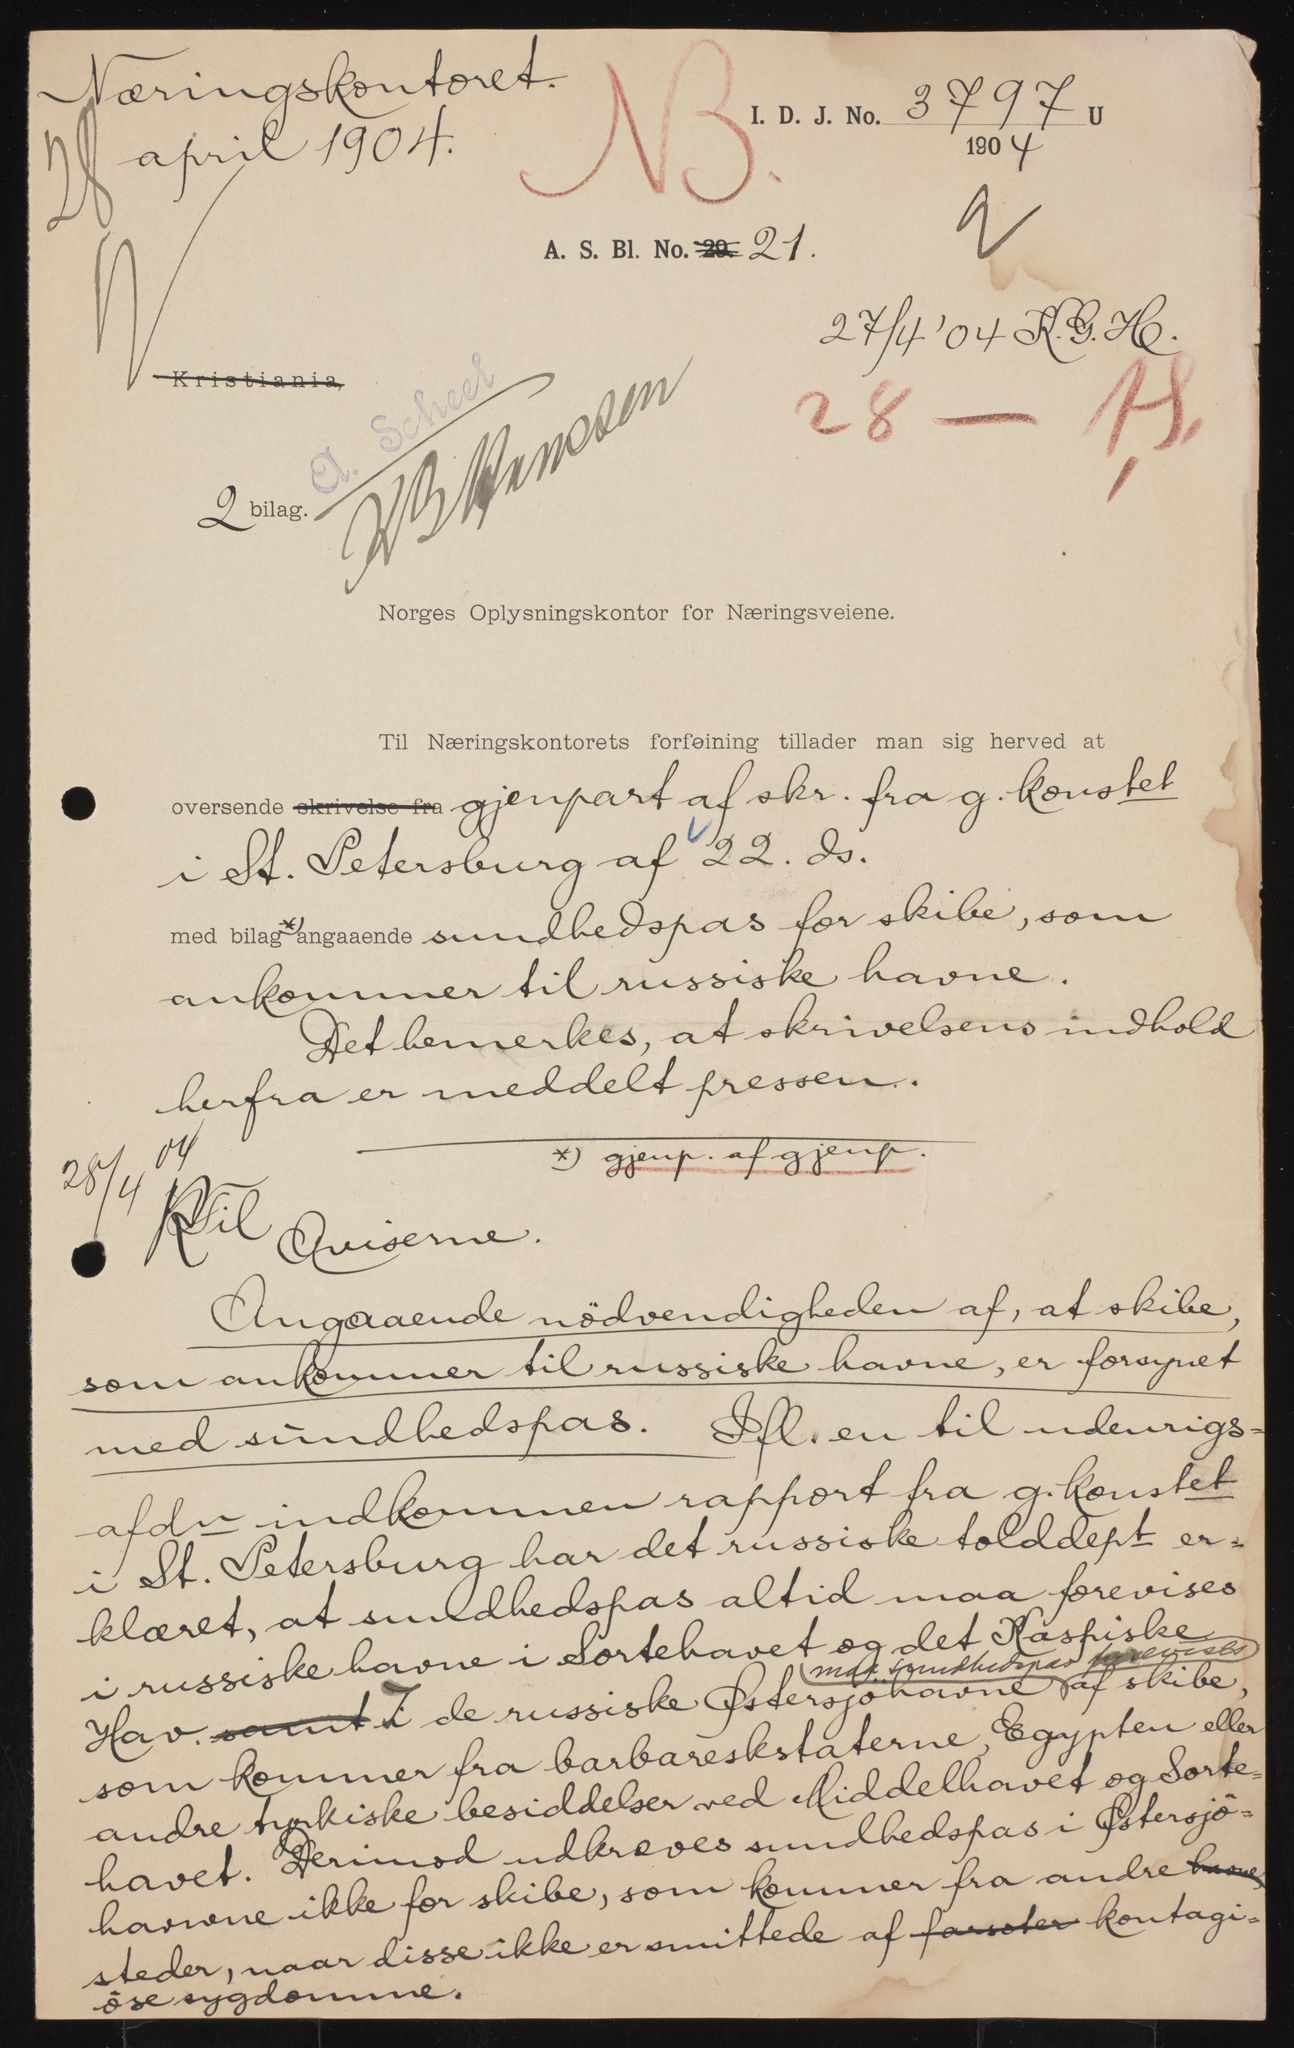 Næringskontoret.
28 april 1904.
NB.
I. D. J. No. 3797 U
1904
2
A. S. Bl. No. 20. 21.
27/4 '04 K. G. H.
28 — H.
Kristiania,
A. Scheel
2 bilag.
Norges Oplysningskontor for Næringsveiene.
Til Næringskontorets forføining tillader man sig herved at
oversende skrivelse fra gjenpart af skr. fra g. konstet
i St. Petersburg af 22. ds.
med bilag *) angaaende sundhedspas for skibe, som
ankommer til russiske havne.
Det bemerkes, at skrivelsens indhold
herfra er meddelt pressen.
*) gjenp. af gjenp.
28/4 04
Til Aviserne.
Angaaende nödvendigheden af, at skibe,
som ankommer til russiske havne, er forsynet
med sundhedspas. Ifl. en til udenrigs=
afdn indkommen rapport fra g. konstet
i St. Petersburg har det russiske tolddept er=
klæret, at sundhedspas altid maa forevises
i russiske havne i Sortehavet og det Kaspiske
maa sundhedspas forevises
Hav. samt I de russiske Østersjöhavne af skibe,
som kommer fra barbareskstaterne, Egypten eller
andre tyrkiske besiddelser ved Middelhavet og Sorte=
havet. Derimod udkræves sundhedspas i Østersjö=
havnene ikke for skibe, som kommer fra andre havne,
steder, naar disse ikke er smittede af farsoter kontagi=
öse sygdomme.